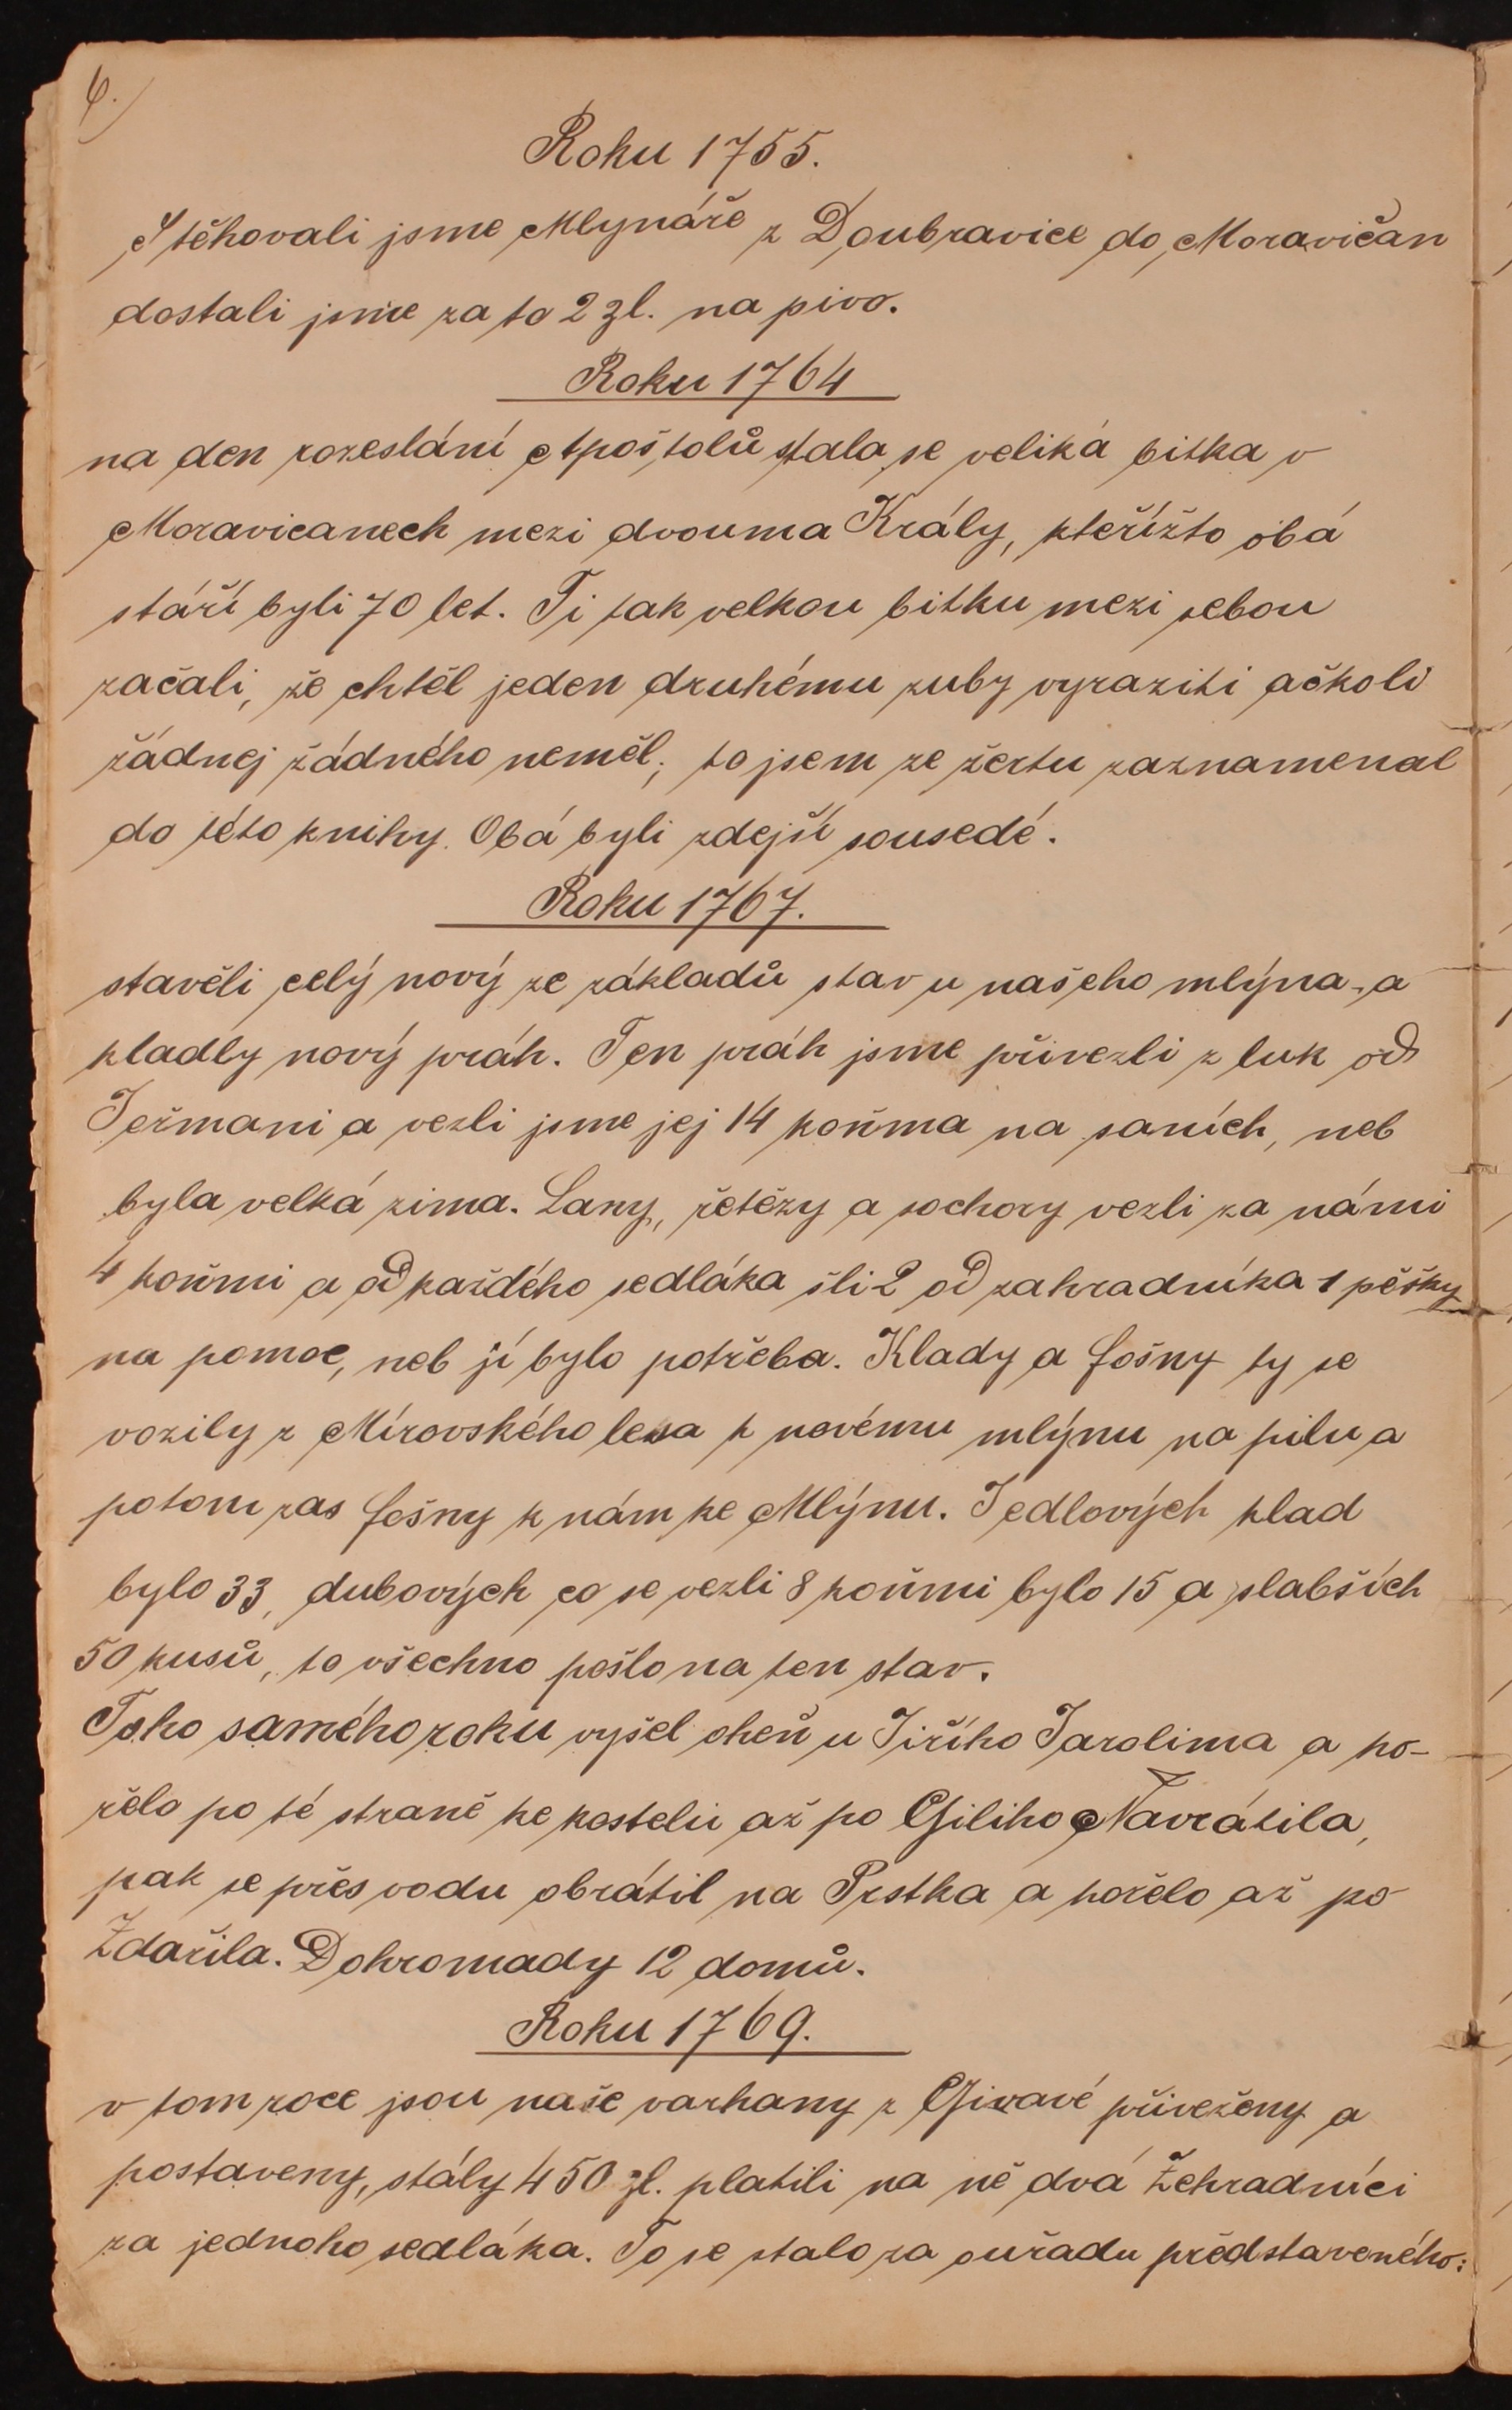 6.
Roku 1755.
Stěhovali jsme Mlynáře z Doubravice do Moravičan
dostali jsme za to 2 zl. na pivo.
Roku 1764
na den rozeslání Apoštolů stala se veliká bitka v
Moravicanech mezi dvouma Krály, kteřížto obá
stáří byli 70 let. Ti tak velkou bitku mezi sebou
začali, že chtěl jeden druhému zuby vyraziti ačkoli
žádnej žádného neměl; to jsem ze žertu zaznamenal
do této knihy. Obá byli zdejší sousedé.
Roku 1767.
stavěli celý nový ze základů stav u našeho mlýna, a
kladly nový práh. Ten práh jsme přivezli z luk od
Jeřmani a vezli jsme jej 14 koňma na saních, neb
byla velká zima. Lany, řetězy a sochory vezli za námi
4 koňmi a od každého sedláka šli 2 od zahradníka 1 pěšky
na pomoc, neb jí bylo potřeba. Klady a fošny ty se
vozily z Mírovského lesa k novému mlýnu na pilu a
potom zas fošny k nám ke Mlýnu. Jedlových klad
bylo 33, dubových co se vezli 8 koňmi bylo 15 a slabších
50 kusů, to všechno pošlo na ten stav.
Toho samého roku vyšel oheň u Jiřího Jarolima a ho-
řelo po té straně ke kostelu až po Giliho Navrátila,
pak se přes vodu obrátil na Prstka a hořelo až po
Ždařila. Dohromady 12 domů.
Roku 1769.
v tom roce jsou naše varhany z Givavé přiveženy a
postaveny, stály 450 zl. platili na ně dvá Žehradníci
za jednoho sedláka. To se stalo za ouřadu představeného: